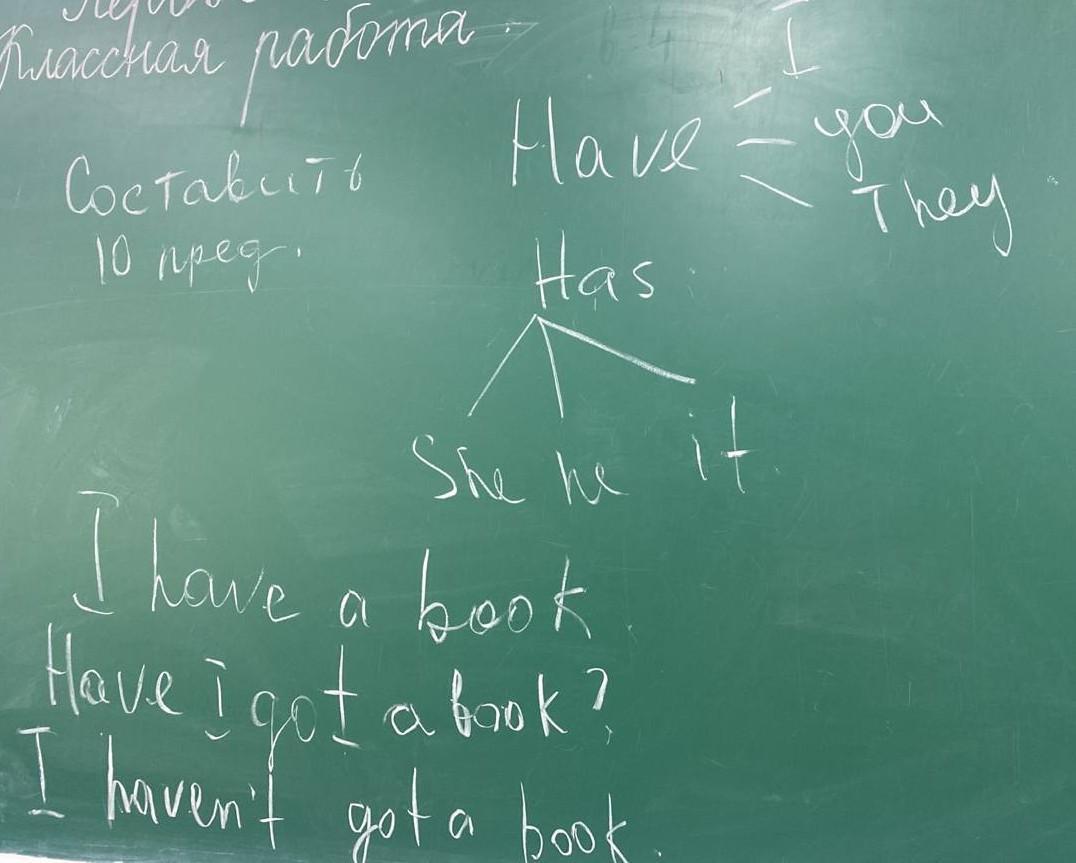 Классная работа.
Составить
10 пред.
Have
I
you
They
Has
She he it
I have a book
Have i got a book?
I haven't got a book.